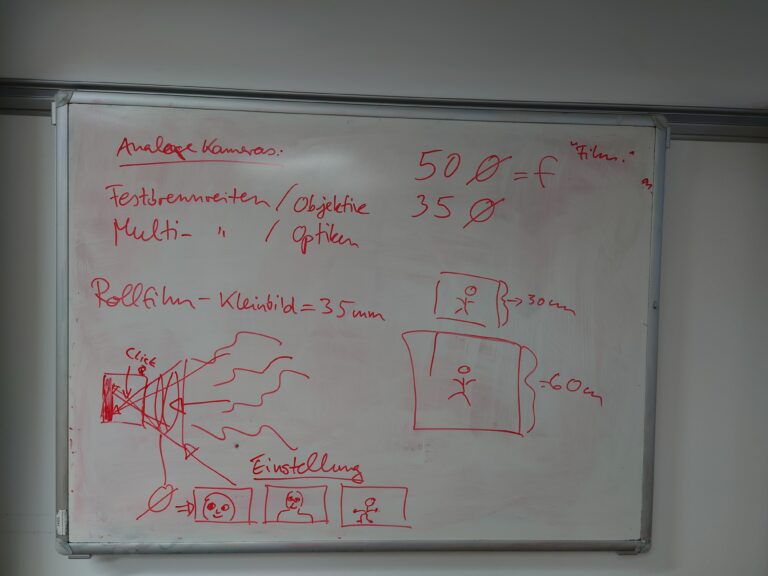 Analoge Kameras:
50 Ø = f
"Film."
35 Ø
Festbrennweiten / Objektive
Multi- " / Optiken
Rollfilm - Kleinbild = 35mm
30cm
60cm
Click
Einstellung
Ø